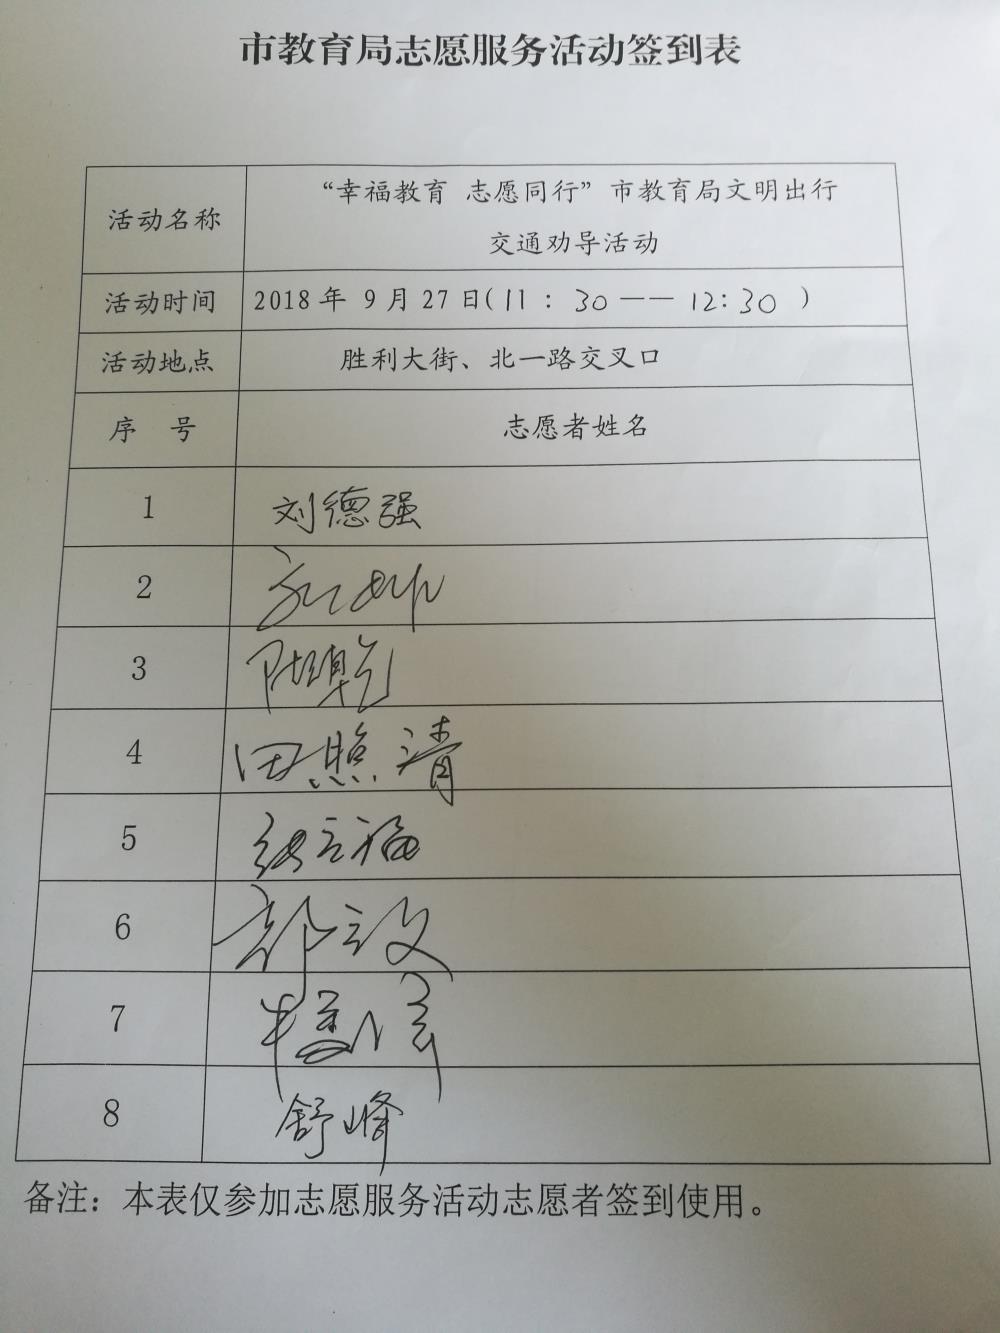 市教育局志愿服务活动签到表
活动名称
“幸福教育 志愿同行”市教育局文明出行
交通劝导活动
活动时间 2018年 9月27日(11:30——12:30)
活动地点 胜利大街、北一路交叉口
序 号 志愿者姓名
1 刘德强
2
3
4 田照清
5
6
7
8 舒峰
备注：本表仅参加志愿服务活动志愿者签到使用。